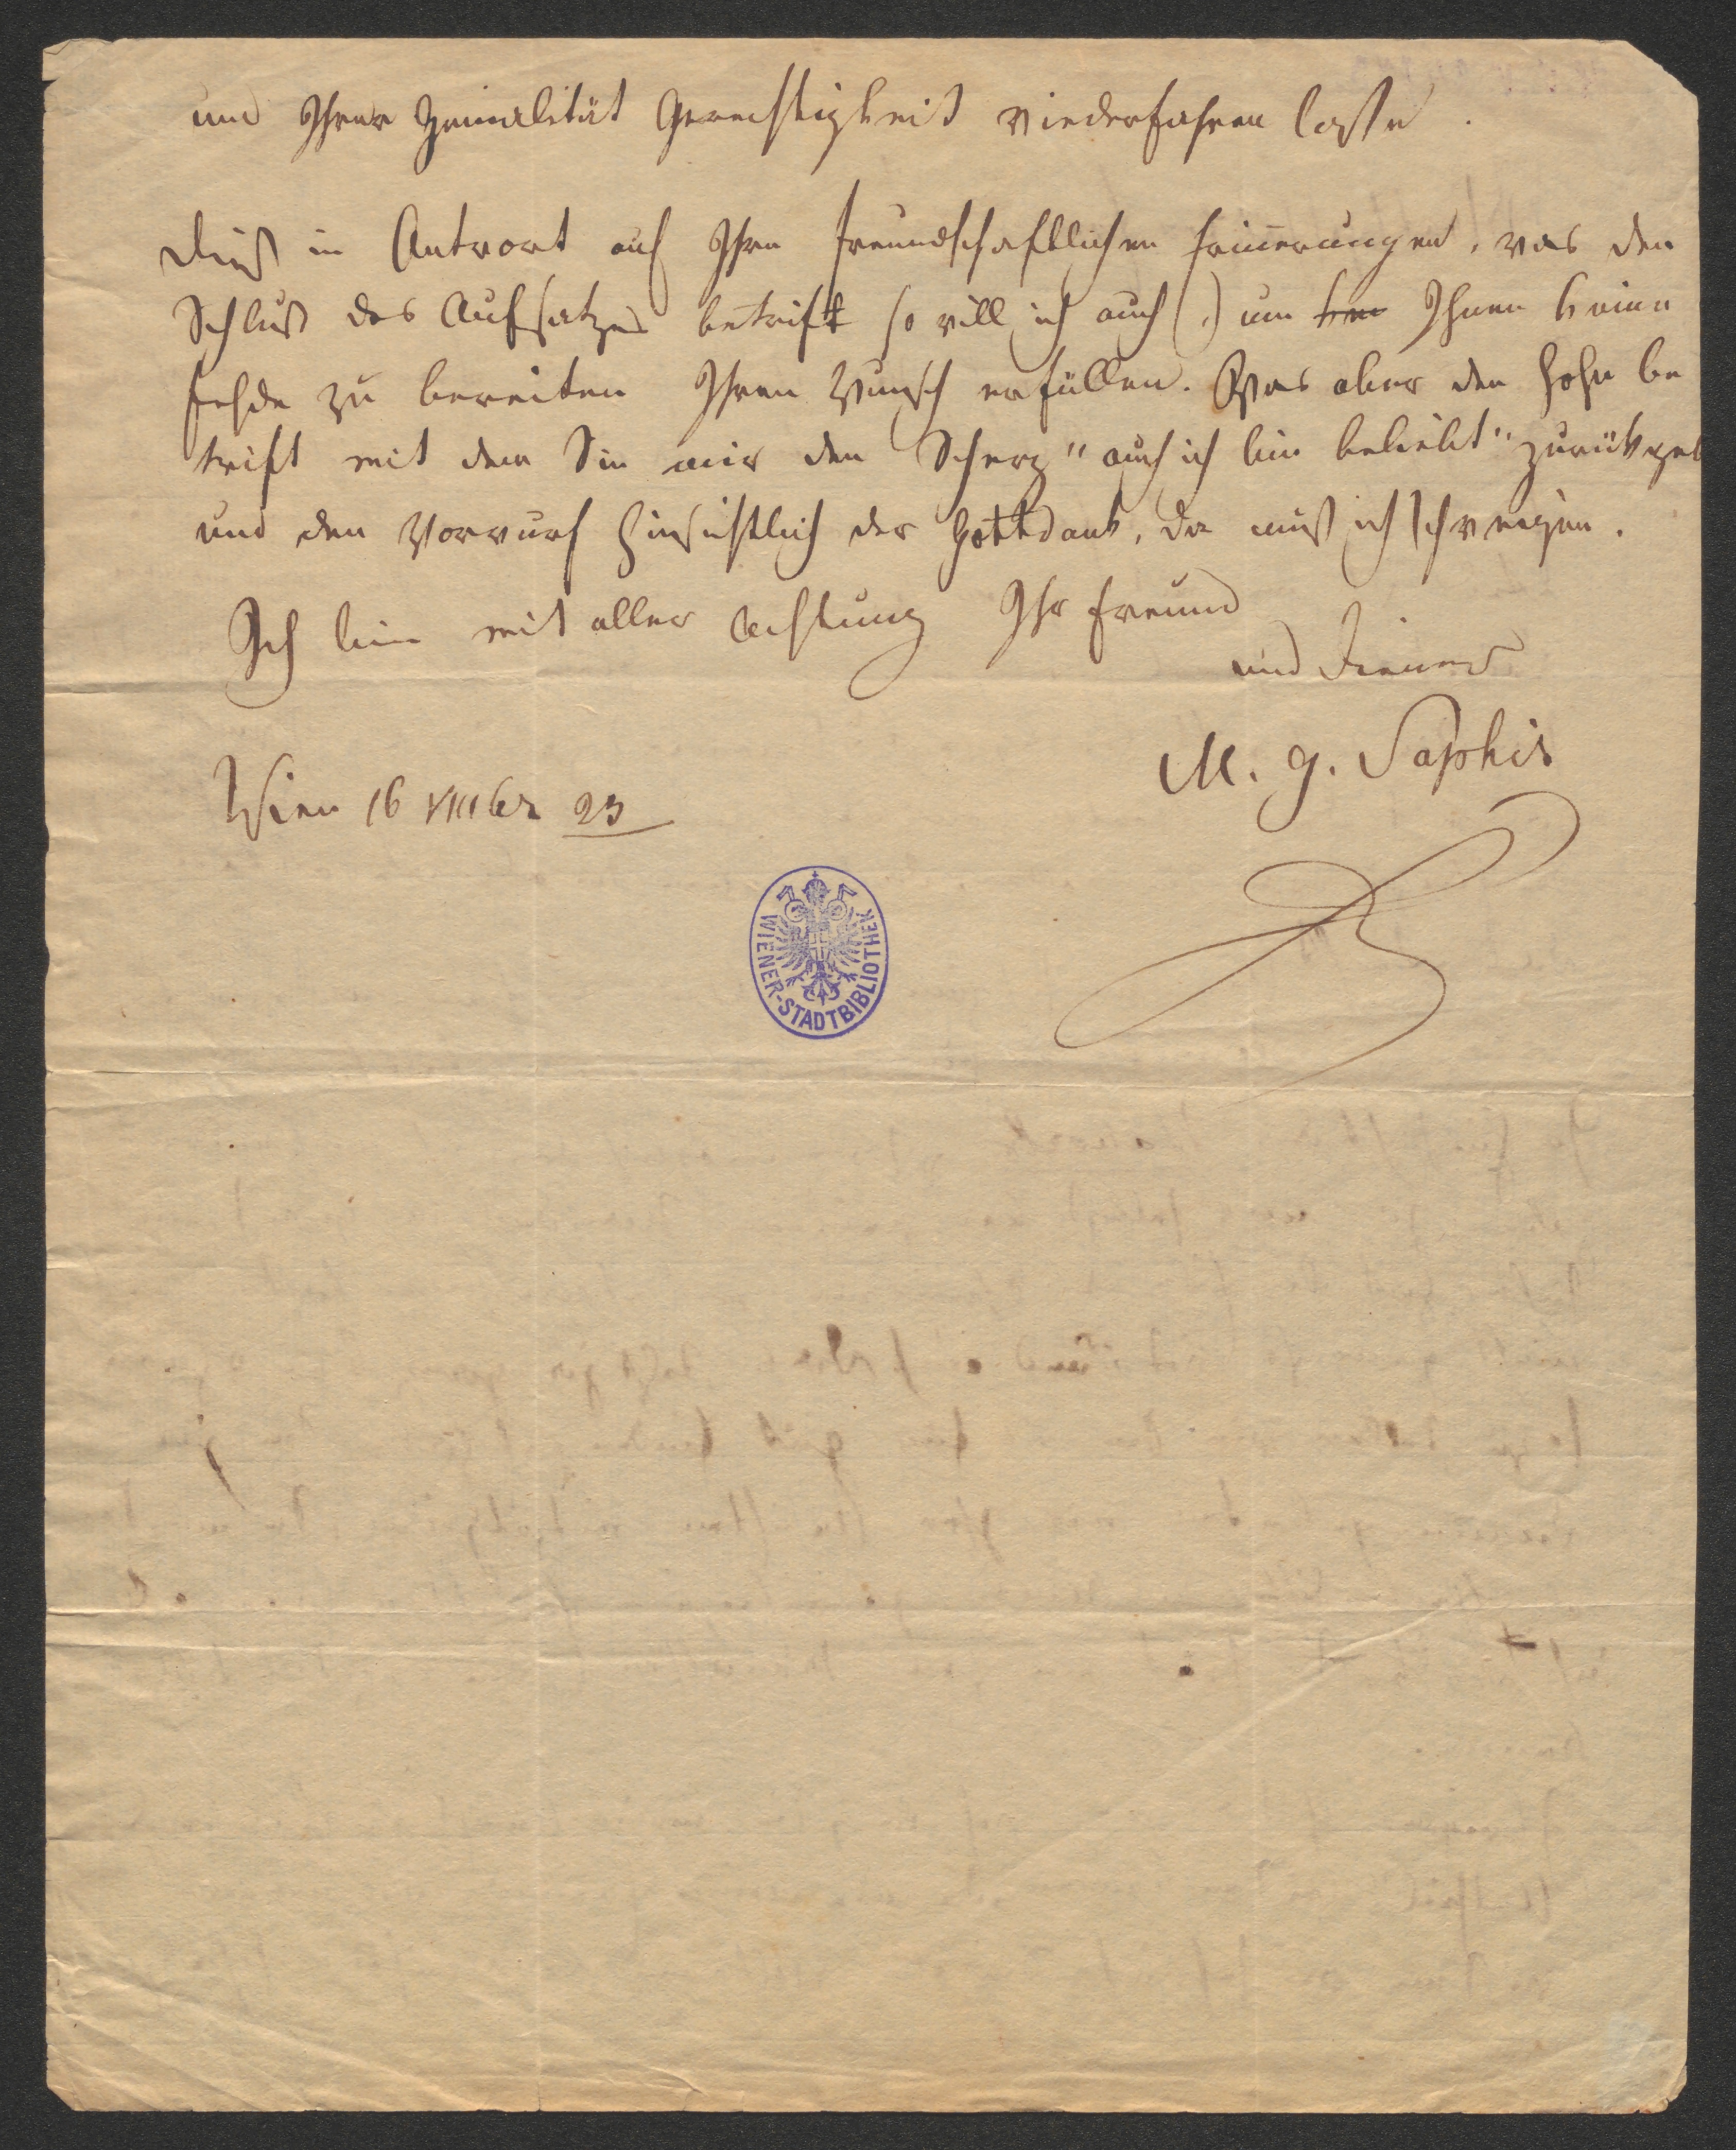 und Ihrer Genialität Gerechtigkeit wiederfahren laße.
Dieß in Antwort auf Ihre freundschaftlichen Erinnerungen, was den
Schluß des Aufsatzes betrift so will ich auch (,) um Ihnen keine
Fehde zu bereiten Ihren Wunsch erfüllen. Was aber den Hohn be
trift mit dem Sie mir den Scherz "auch ich bin beliebt" zurükgeb
und den Vorwurf hinsichtlich der Gottdank, da muß ich schweigen.
Ich bin mit aller Achtung Ihr Freund
und Diener
M. G. Saphir
Wien 16 VIIIbr 23
WIENER-STADTBIBLIOTHEK